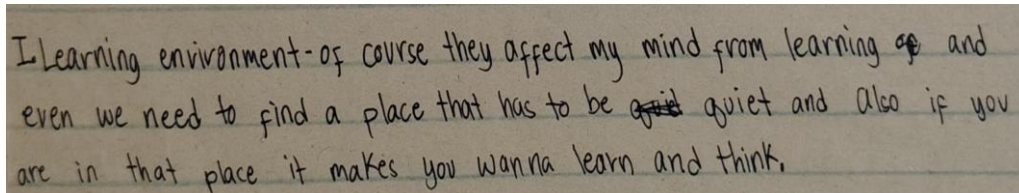 I Learning environment - of course they affect my mind from learning and
even we need to find a place that has to be quiet and also if you
are in that place it makes you wanna learn and think.